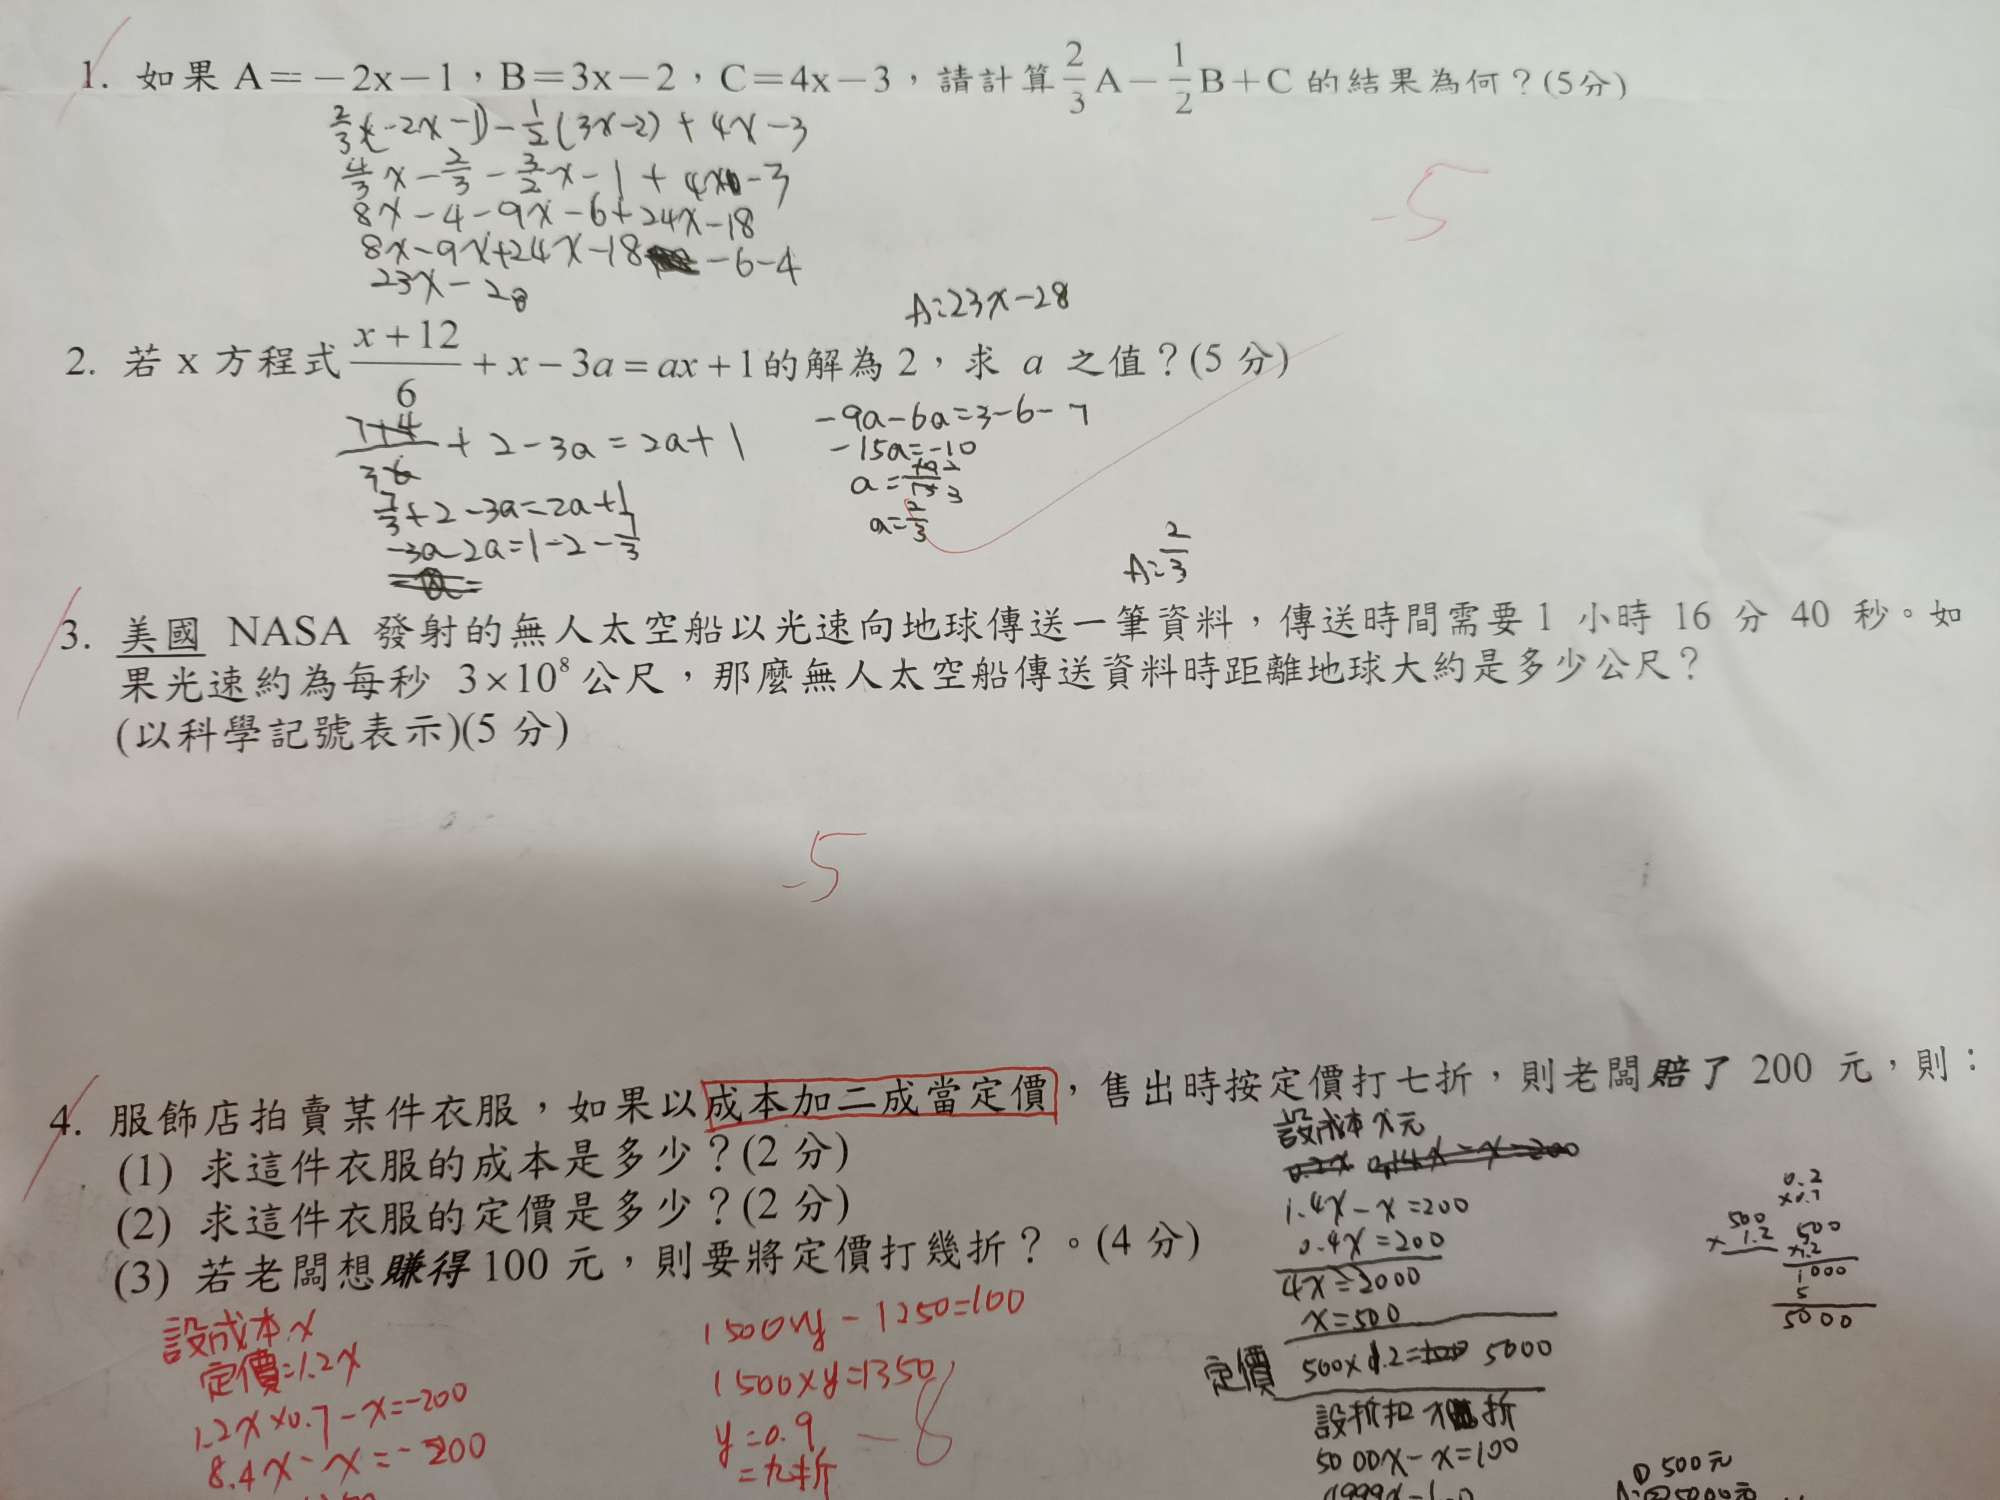 1. 如果 A＝－2x－1，B＝3x－2，C＝4x－3，請計算 2/3 A－1/2 B＋C 的結果為何？(5分)
2/3(-2x-1)-1/2(3x-2)+4x-3
4/3x-2/3-3/2x-1+4x-3
8x-4-9x-6+24x-18
8x-9x+24x-18-6-4
23x-28
A:23x-28
-5
2. 若 x 方程式 (x+12)/6 + x－3a＝ax＋1的解為 2，求 a 之值？(5 分)
+2-3a=2a+1
7/3+2-3a=2a+1
-3a-2a=1-2-7/3
-9a-6a=3-6-7
-15a=-10
a=10/15 2/3
a=2/3
A:2/3
3. 美國 NASA 發射的無人太空船以光速向地球傳送一筆資料，傳送時間需要 1 小時 16 分 40 秒。如
果光速約為每秒 3×10⁸ 公尺，那麼無人太空船傳送資料時距離地球大約是多少公尺？
(以科學記號表示)(5 分)
-5
4. 服飾店拍賣某件衣服，如果以成本加二成當定價，售出時按定價打七折，則老闆賠了 200 元，則：
(1) 求這件衣服的成本是多少？(2 分)
(2) 求這件衣服的定價是多少？(2 分)
(3) 若老闆想賺得 100 元，則要將定價打幾折？。(4 分)
設成本x
定價=1.2x
1.2x×0.7-x=-200
8.4x-x=-200
1500×y-1250=100
1500×y=1350
y=0.9
=九折
-8
設成本x元
1.4x-x=200
0.4x=200
4x=2000
x=500
定價 500×1.2= 5000
設折扣x折
5000x-x=100
0.2
×0.7
500
×1.2
500
×1.2
1000
5
5000
① 500元